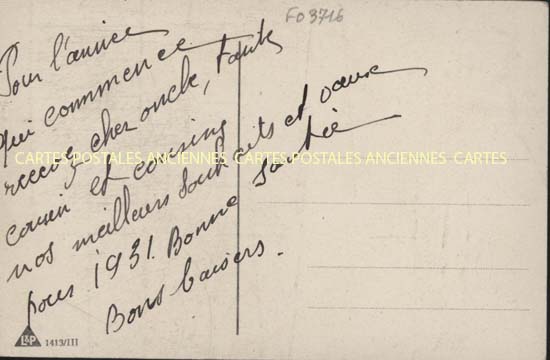 FO 3716
Pour l'année
qui commence
recevez cher oncle, tante
cousin et cousins
nos meilleurs souhaits et voeux
pour 1931. Bonne santée
Bons baisers.
CARTES POSTALES ANCIENNES CARTES POSTALES ANCIENNES CARTES
L&P 1413/III